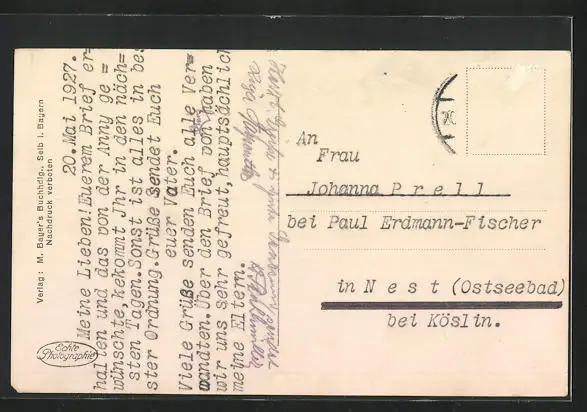 Verlag: M. Bayer's Buchhdlg., Selb i. Bayern
Nachdruck verboten
Echte
Photographie
20.Mai 1927.
Meine Lieben! Euerem Brief er=
halten und das von der Anny ge=
wünschte, kekommt Jhr in den näch=
sten Tagen. Sonst ist alles in be
ster Ordnung. Grüße sendet Euch
euer Vater.
Viele Grüße senden Euch alle Ver=
wandten. Über den Brief von haben
wir uns sehr gefreut, hauptsächlich
meine Eltern.
An
Frau
Johanna P r e l l
bei Paul Erdmann-Fischer
in N e s t (Ostseebad)
bei Köslin.